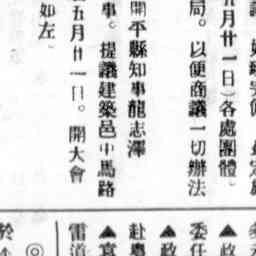 五月廿一日）各處團體。
局。以便商議一切辦法
開平縣知事龍志澤
事。提議建築邑中馬路
五月廿一日。開大會
如左。
▲政
委任
▲政
赴粵
▲袁
雷道
◎
於